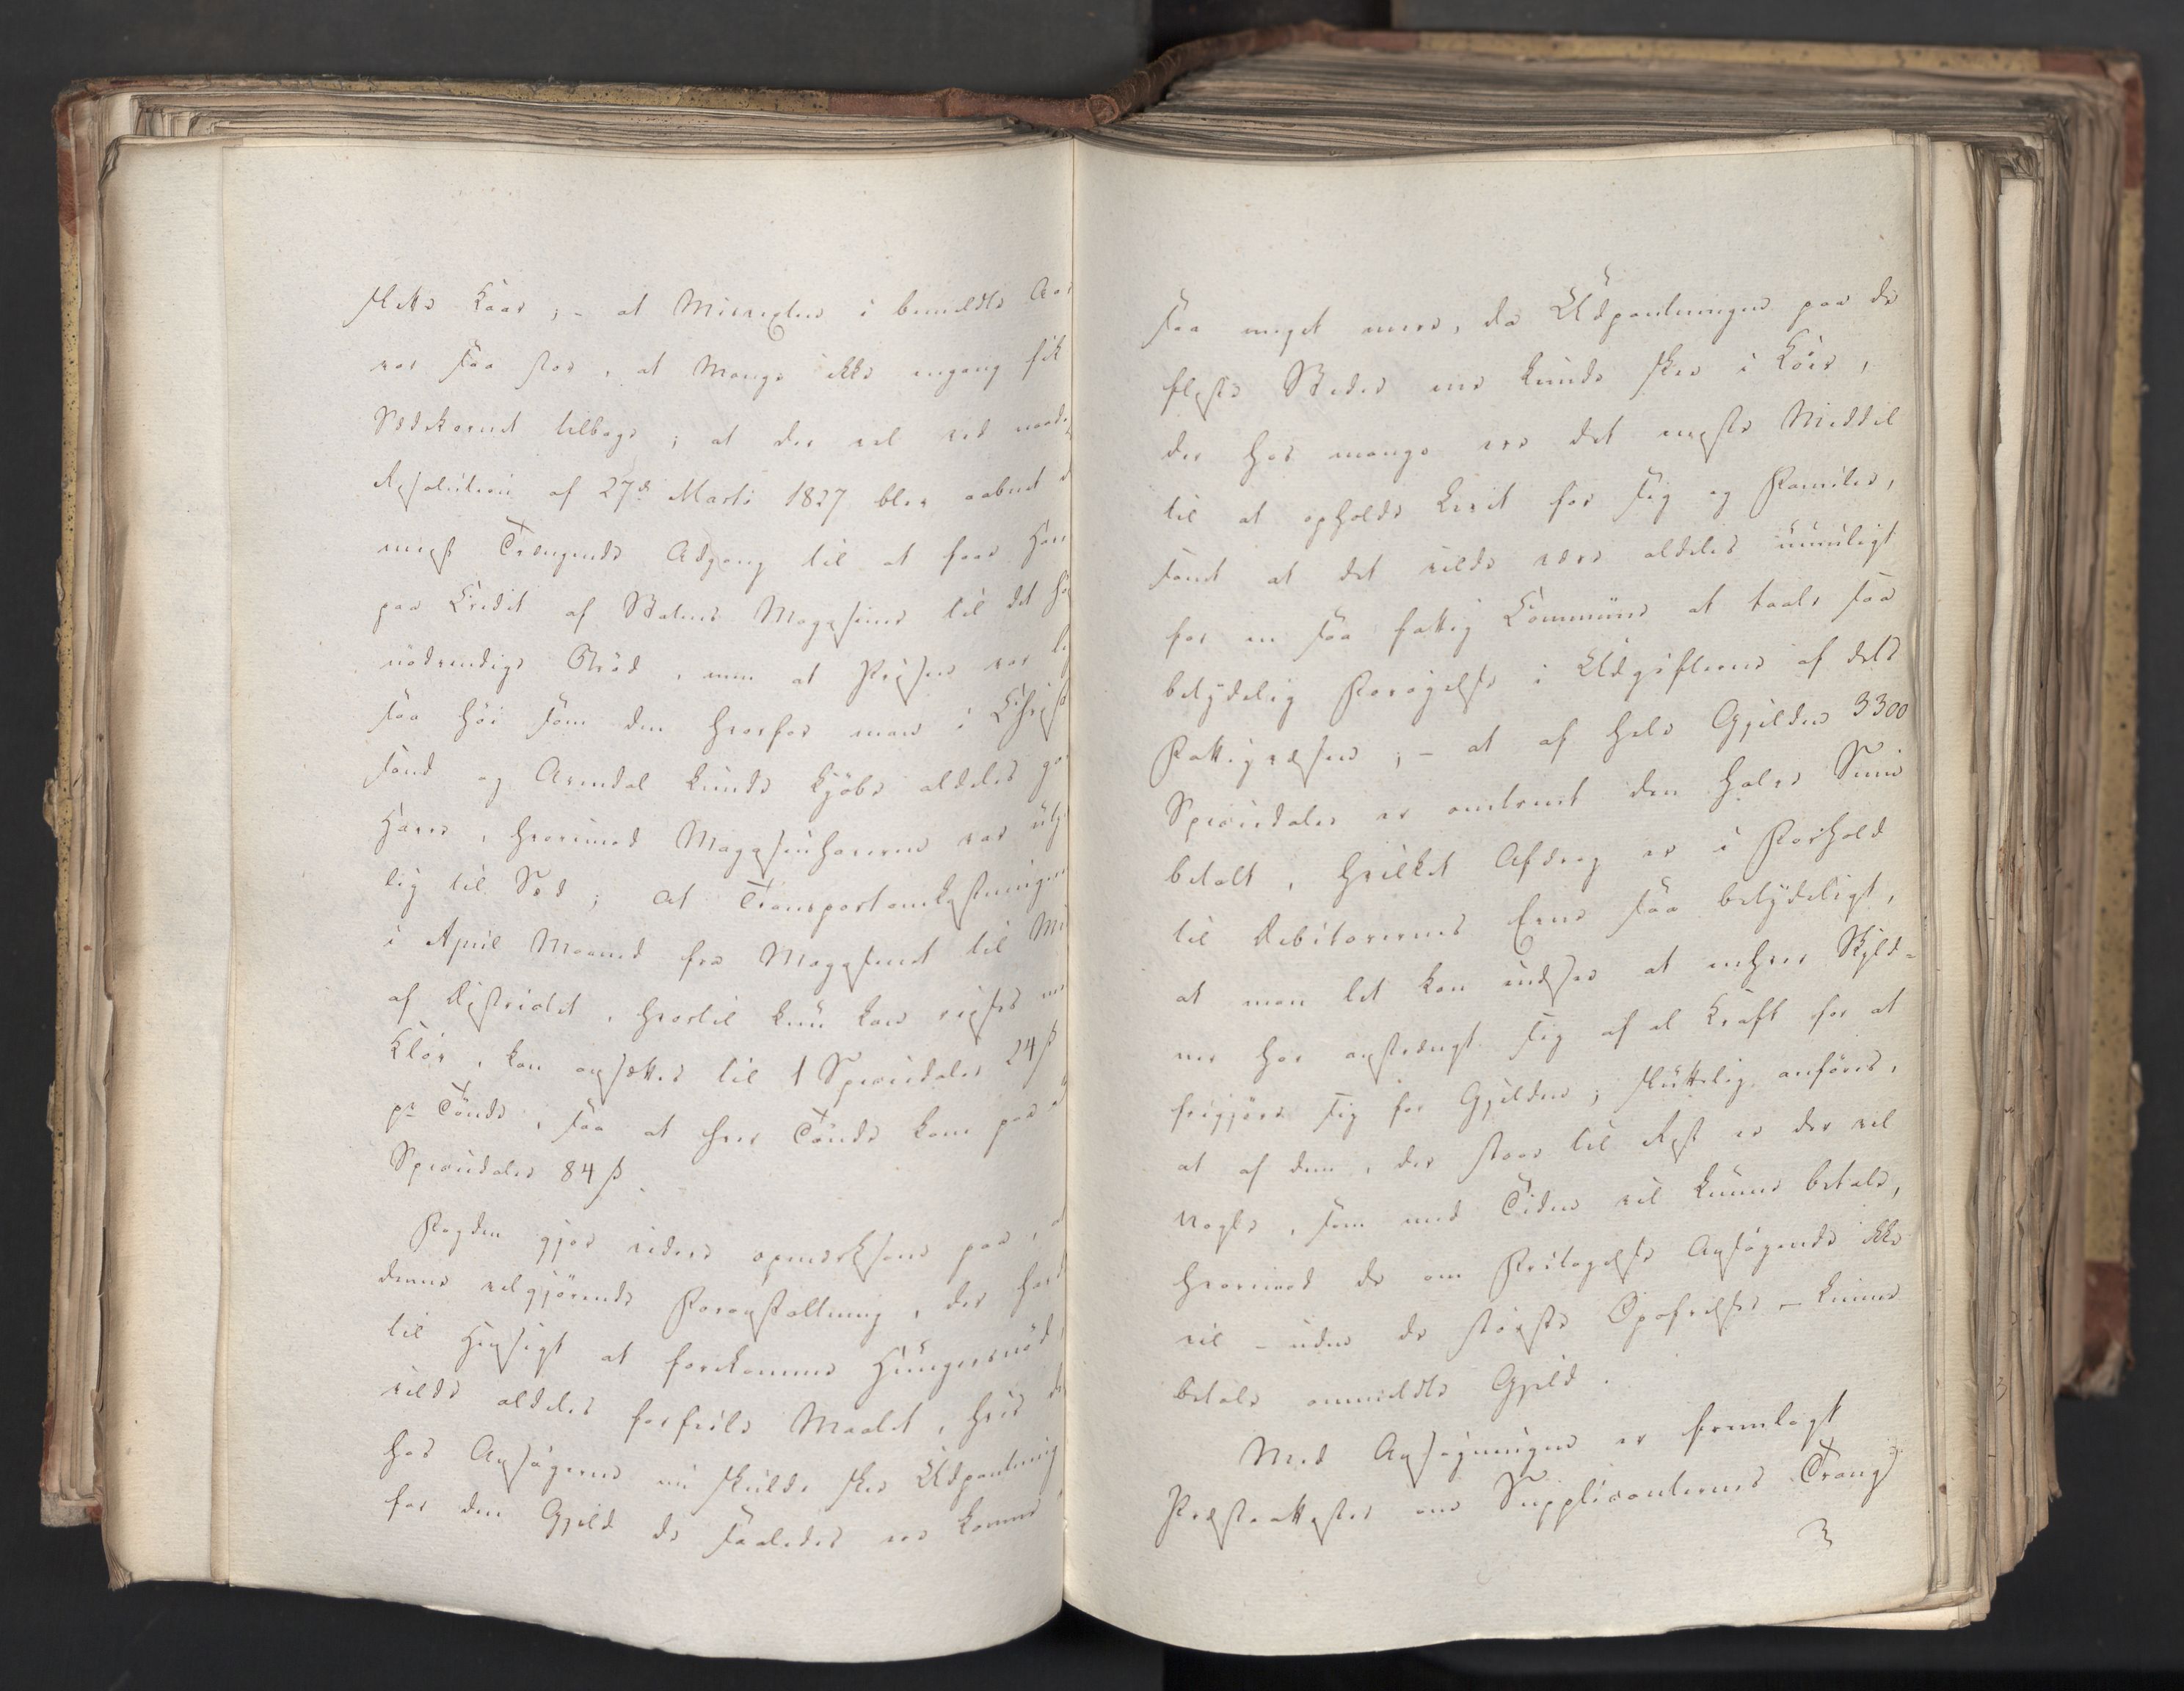 slette Kaar; - at Misvexten i bemeldte Aar
var saa stor, at Mange ikke engang fik
Sædekornet tilbage; at der vel ved naadig
Resolution af 27de Marts 1827 blev aabnet de
mest Trængende Adgang til at faae Havre
paa Credit af Statens Magasiner til det høi
nødvendige Brød, men at Prisen var lige
saa høi som den hvorfor man i Christian
sand og Arendal kunde kjøbe aldeles god
Havre, hvorimod Magasinhavren var utje
lig til Sæd; at Transportomkostningerne
i April Maaned fra Magasinet til Mid
af Districtet, hvortil kun kan reises med
Kløv, kan ansættes til 1 Speciedaler 24 ß
pr Tønde, saa at hver Tønde kom paa
Speciedaler 84 ß.
Fogden gjør videre opmærksom paa, at
denne velgjørende Foranstaltning, der havde
til Hensigt at forekomme Hungersnød,
vilde aldeles forfeile Maalet, hvis der
hos Ansøgerne nu skulde skee Udpantning
for den Gjeld de saaledes ere komne i
saa meget mere, da Udpantningen paa de
fleste Steder ene kunde skee i Køer,
der hos mange ere det meste Middel
til at opholde Livet for sig og Familie,
samt at det vilde være aldeles umuligt
for en saa fattig Commune at taale saa
betydelig Forøgelse i Udgifterne af dets
Fattigvæsen; - at af hele Gjelden 3300
Speciedaler er omtrent den halve Sum
betalt, hvilket Afdrag er i Forhold
til Debitorernes Evne saa betydeligt,
at man let kan indsee at enhver Skyld-
ner har anstrengt sig af al Kraft for at
frigjøre sig for Gjelden; sluttelig anføres,
at af dem, der staae til Rest er der vel
Nogle, som med Tiden vil kunne betale,
hvorimod de om Fritagelse Ansøgende ikke
vil - uden de største Opofrelser - kunne
betale ommeldte Gjeld.
Med Ansøgningen er fremlagt
Præsteattester om Supplicanternes Trang